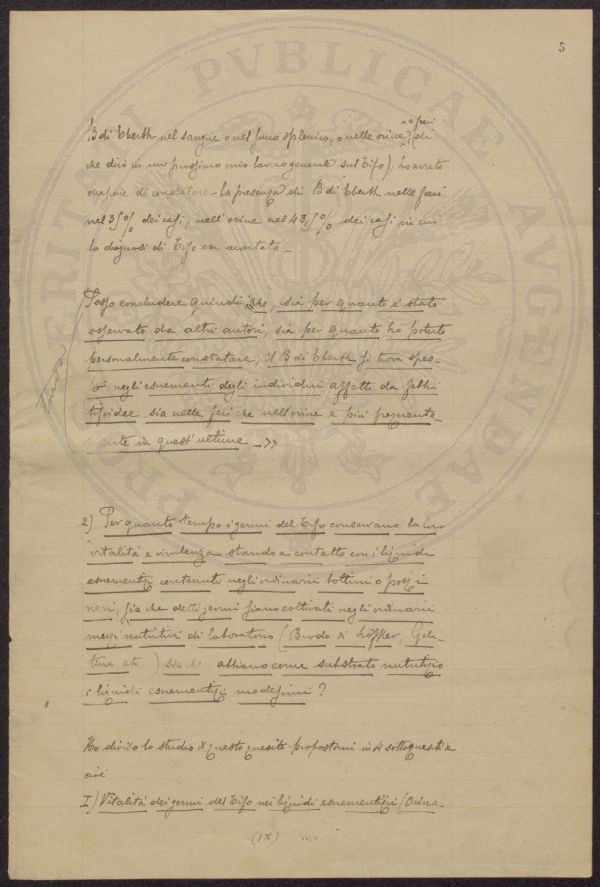 5
e feci
B di Eberth nel sangue o nel succo splenico, o nelle orine (di
che dirò in un prossimo mio lavoro generale sul Tifo), ho avuto
occasione di constatare la presenza di B di Eberth nelle feci
nel 35% dei casi, nell'orine nel 43,5% dei casi in cui
la diagnosi di Tifo era accertata –
Posso concludere quindi che, sia per quanto è stato
osservato da altri autori, sia per quanto ho potuto
personalmente constatare, il B di Eberth si trova spes-
so negli escrementi degli individui affetti da febbri
tifoidee sia nelle feci che nell'orine e più frequente-
mente in quest'ultime –»
2) Per quanto tempo i germi del Tifo conservano la loro
vitalità e virulenza stando a contatto con i liquidi
escrementizi contenuti negli ordinarii bottini o pozzi
neri, sia che detti germi siano coltivati negli ordinarii
mezzi nutritivi di laboratorio (Brodo di Löffler, Gela-
tina etc) sia abbiano come substrato nutritizio
i liquidi escrementizi medesimi?
Ho diviso lo studio di questo quesito propostomi in 4 sottoquesiti e
cioè
I) Vitalità dei germi del Tifo nei liquidi escrementizi (Orina-
(IX)
PRO VERITATI PVBLICAE AVGENDAE